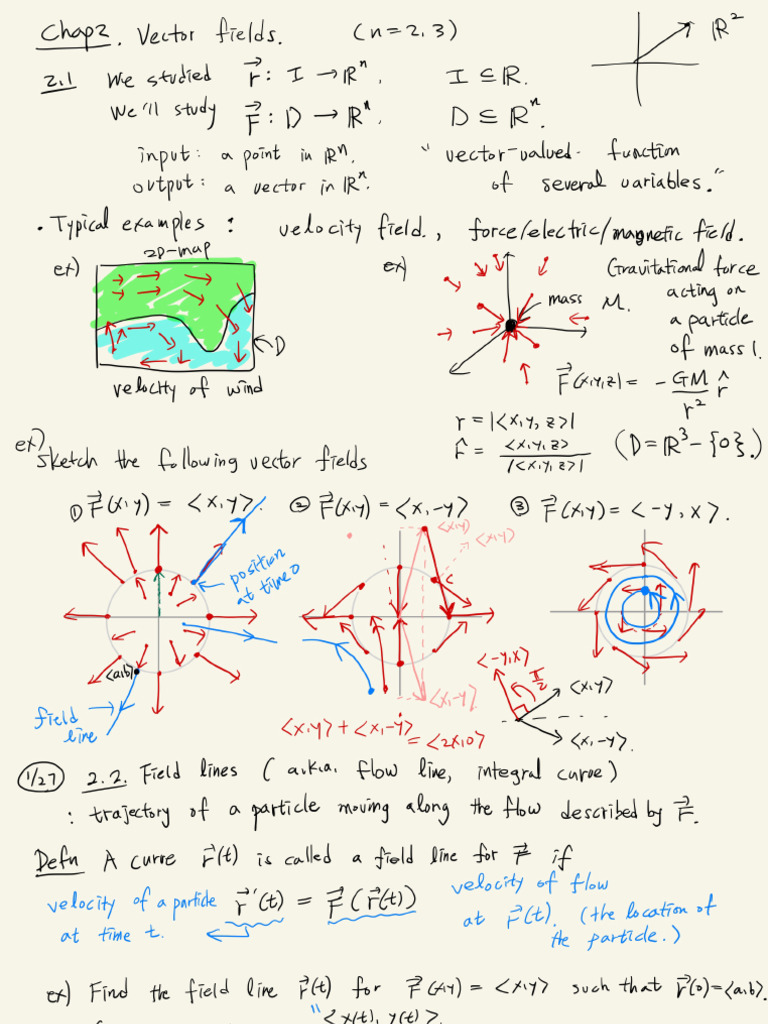 Chap2. Vector fields. (n=2,3)
ℝ²
2.1 We studied r⃗ : I → ℝⁿ, I ⊆ ℝ.
We'll study F⃗ : D → ℝⁿ, D ⊆ ℝⁿ.
input: a point in ℝⁿ. "vector-valued function
output: a vector in ℝⁿ. of several variables."
• Typical examples : velocity field, force/electric/magnetic field.
ex) 2D-map
D
velocity of wind
ex) mass M.
Gravitational force
acting on
a particle
of mass 1.
F⃗(x,y,z) = - GM/r² r̂
r = |<x,y,z>|
r̂ = <x,y,z>/|<x,y,z>| (D = ℝ³ - {0}.)
ex) Sketch the following vector fields
① F⃗(x,y) = <x,y>. ② F⃗(x,y) = <x,-y> ③ F⃗(x,y) = <-y,x>.
position
at time 0
<a,b>
field
line
<x,y>
<x,y>
<x,-y>
<x,y> + <x,-y>
= <2x,0>
<-y,x>
π/2
<x,y>
<x,-y>.
1/27 2.2. Field lines (a.k.a. flow line, integral curve)
: trajectory of a particle moving along the flow described by F⃗.
Defn A curve r⃗(t) is called a field line for F⃗ if
velocity of a particle
at time t.
r⃗'(t) = F⃗(r⃗(t))
velocity of flow
at r⃗(t). (the location of
the particle.)
ex) Find the field line r⃗(t) for F⃗(x,y) = <x,y> such that r⃗(0)=<a,b>.
" <x(t), y(t)>.